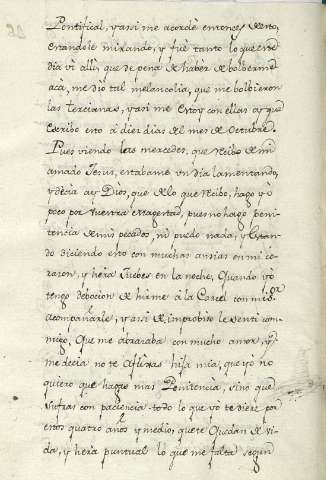 Pontifical, y assi me acordè entonces de esto,
estandole mirando, y fuè tanto lo que este
dia vi alli, que de pena de haber de bolberme
acà, me dió tal melancolia, que me bolbieron
las Tercianas, y assi me estoy con ellas oy que
escribo esto á diez dias del mes de Octubre.
Pues viendo las mercedes, que recibo de mi
amado Jesus, estabame vn dia lamentando,
y decia ay Dios, que de lo que recibo, hago yò
poco por Vuestra Magestad, pues no hago peni-
tencia de mis pecados, ni puedo nada, y estan-
do diciendo esto con muchas ansias en mi co-
razon, y hera Juebes en la noche, quando yò
tengo debocion de hirme à la Carcel con mi Sr.
acompañarle, y assi de improbiso le senti con-
migo, que me abrazaba con mucho amor, y
me decia no te aflixas hija mia, que yò no
quiero que hagas mas Penitencia, sino que
sufras con paciencia todo lo que yò te diere por
estos quatro años y medio, que te quedan de vi-
da, y hera puntual lo que me falta segun